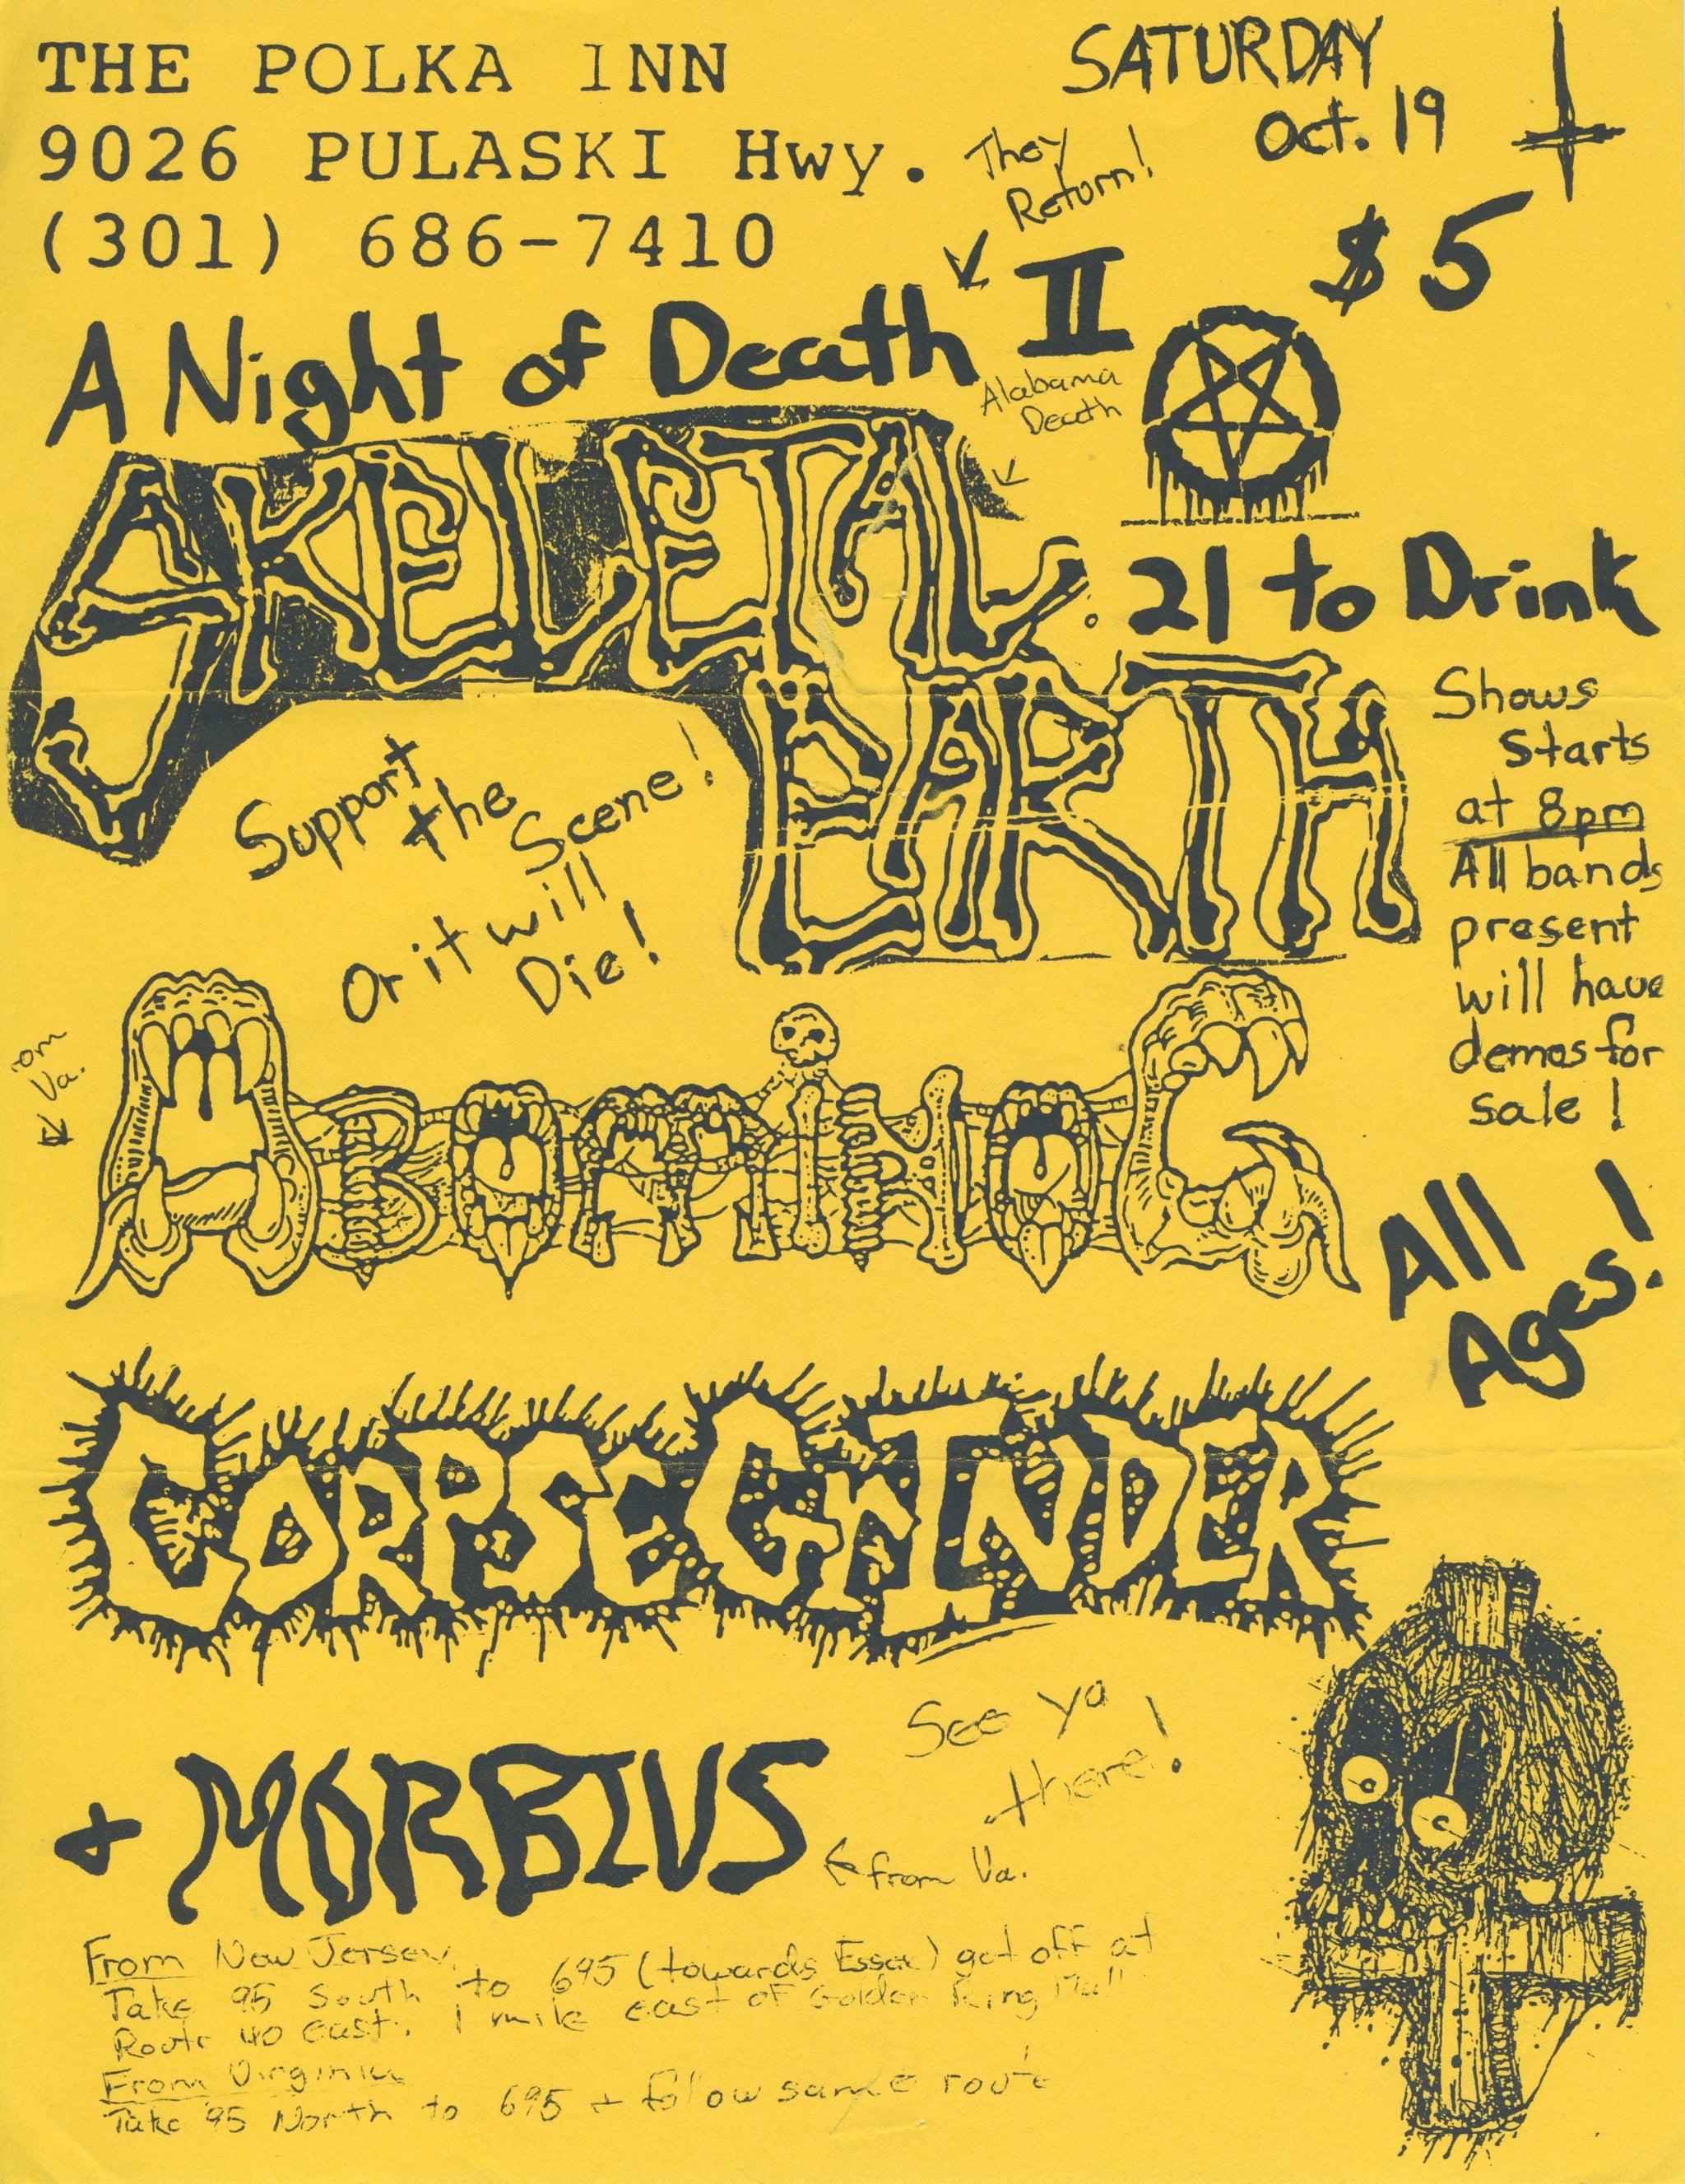 THE POLKA INN
9026 PULASKI Hwy.
(301) 686-7410
SATURDAY
Oct. 19
$5
They
Return!
A Night of Death II
Alabama
Death
SKELETAL
EARTH
21 to Drink
Shows
Starts
at 8pm
All bands
present
will have
demos for
sale!
Support
the
Scene!
Or it will
Die!
Va.
ABOMINOG
All
Ages!
CORPSEGRINDER
+ MORBIUS
from Va.
See ya
there!
From New Jersey,
Take 95 South to 695 (towards Essex) get off at
Route 40 east. 1 mile east of Golden Ring Mall
From Virginia
Take 95 North to 695 + follow same route